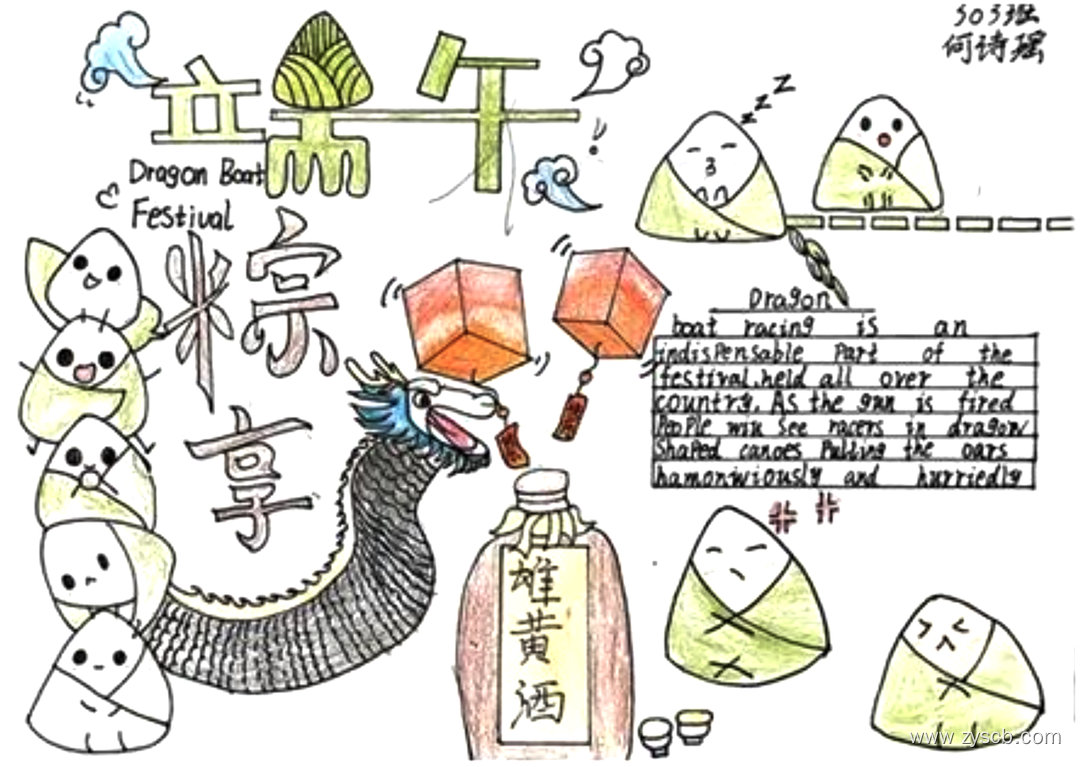 503班
何诗瑶
端午
Dragon Boat
Festival
粽
享
z z z
Dragon
boat racing is an
indisPensable Part of the
festival, held all over the
country. As the gun is fired
PeoPle will see racers in dragon
ShaPed canoes Pulling the oars
hamoniwiously and hurriedly
雄
黄
酒
www.zyscb.com